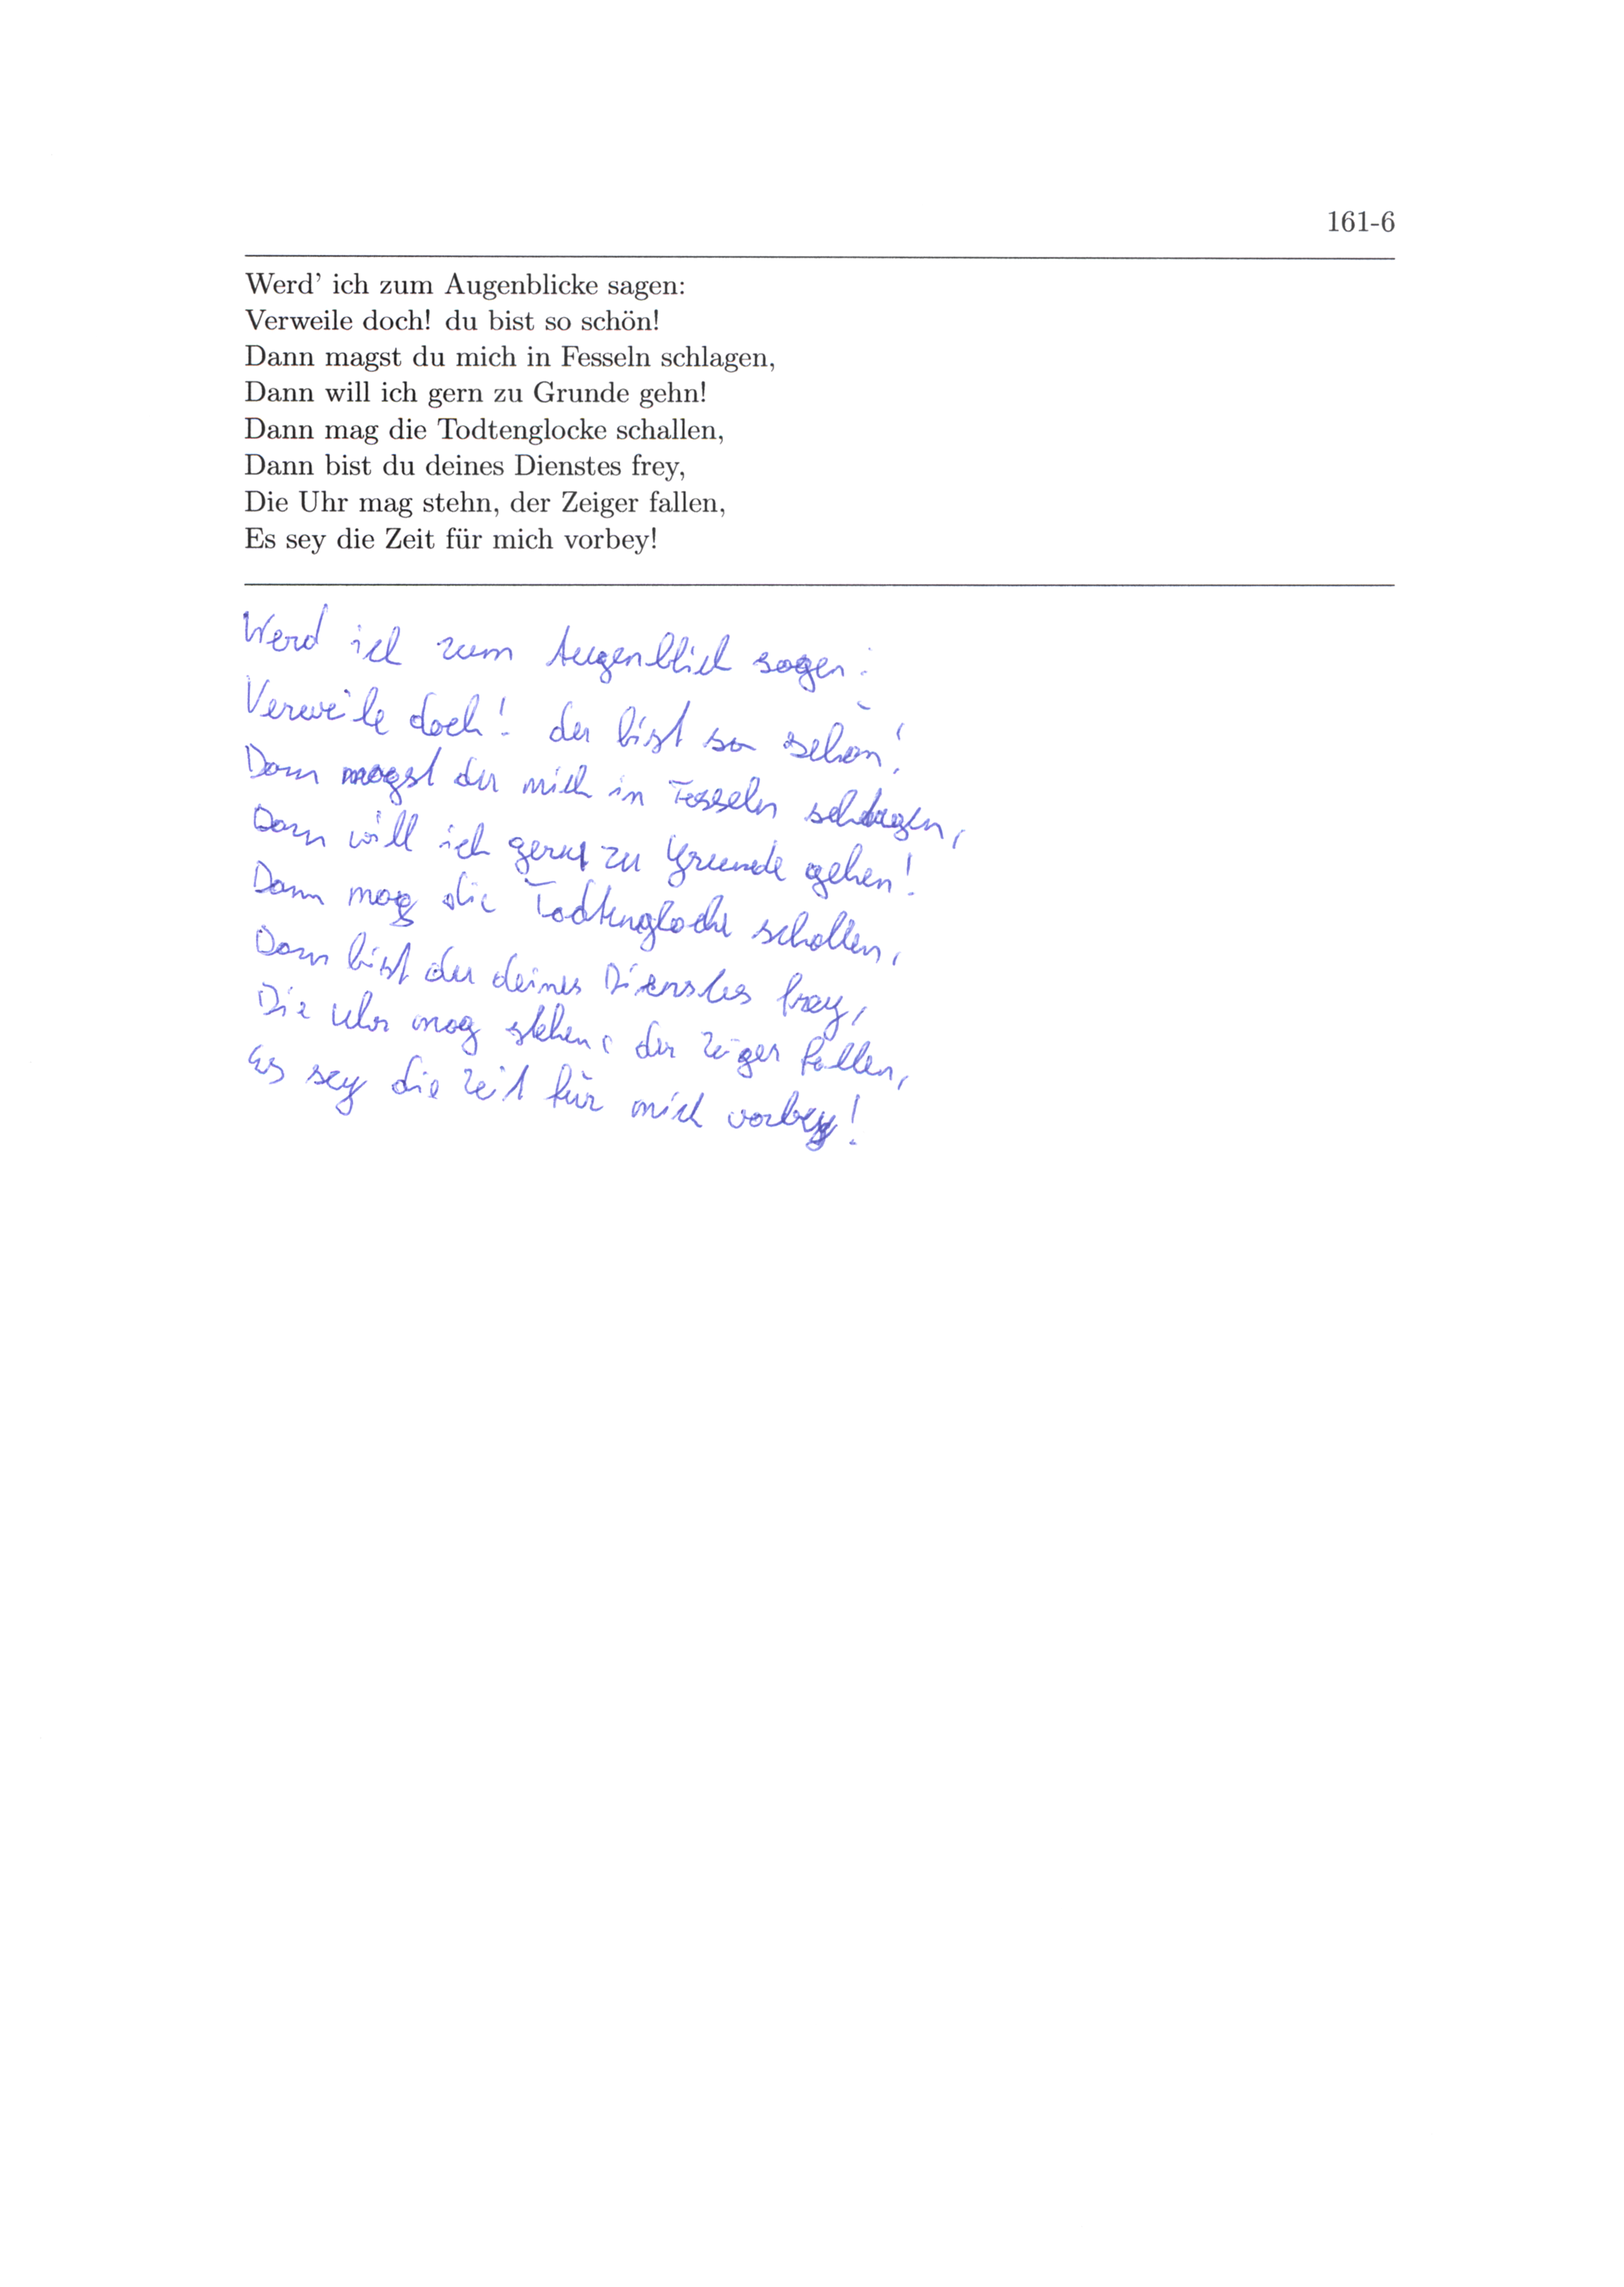 161-6
Werd' ich zum Augenblicke sagen:
Verweile doch! du bist so schön!
Dann magst du mich in Fesseln schlagen,
Dann will ich gern zu Grunde gehn!
Dann mag die Todtenglocke schallen,
Dann bist du deines Dienstes frey,
Die Uhr mag stehn, der Zeiger fallen,
Es sey die Zeit für mich vorbey!
Werd ich zum Augenblick sagen:
Verweile doch! du bist so schön!
Dann magst du mich in Fesseln schlagen,
Dann will ich gern zu Grunde gehen!
Dann mag die Todtenglocke schallen,
Dann bist du deines Dienstes frey,
Die Uhr mag stehen, der Zeiger fallen,
Es sey die Zeit für mich vorbey!